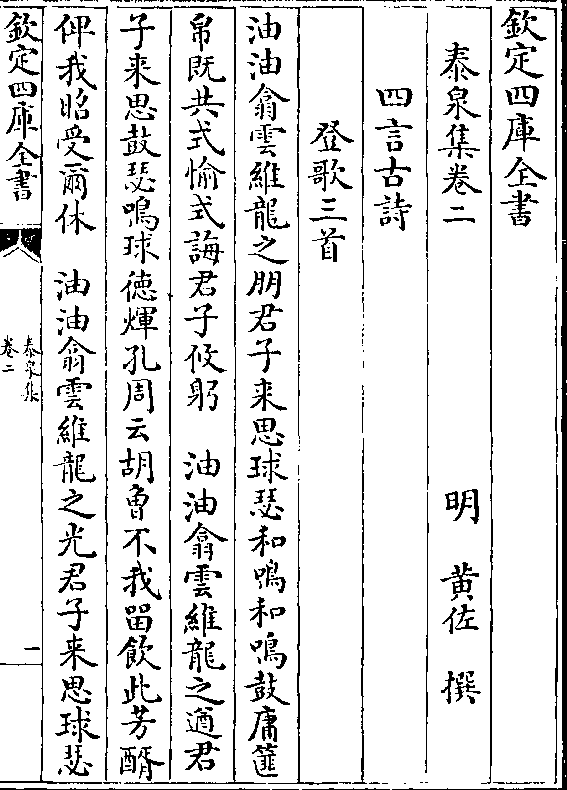 欽定四庫全書
泰泉集卷二
明　黄佐　撰
四言古詩
登歌三首
油油翕雲維龍之朋君子来思球瑟和鳴和鳴鼓庸篚
帛既共式愉式誨君子攸躬　油油翕雲維龍之遒君
子来思鼓瑟鳴球徳煇孔周云胡曾不我留飲此芳醑
仰我昭受爾休　油油翕雲維龍之光君子来思球瑟
欽定四庫全書
泰泉集
卷二
一